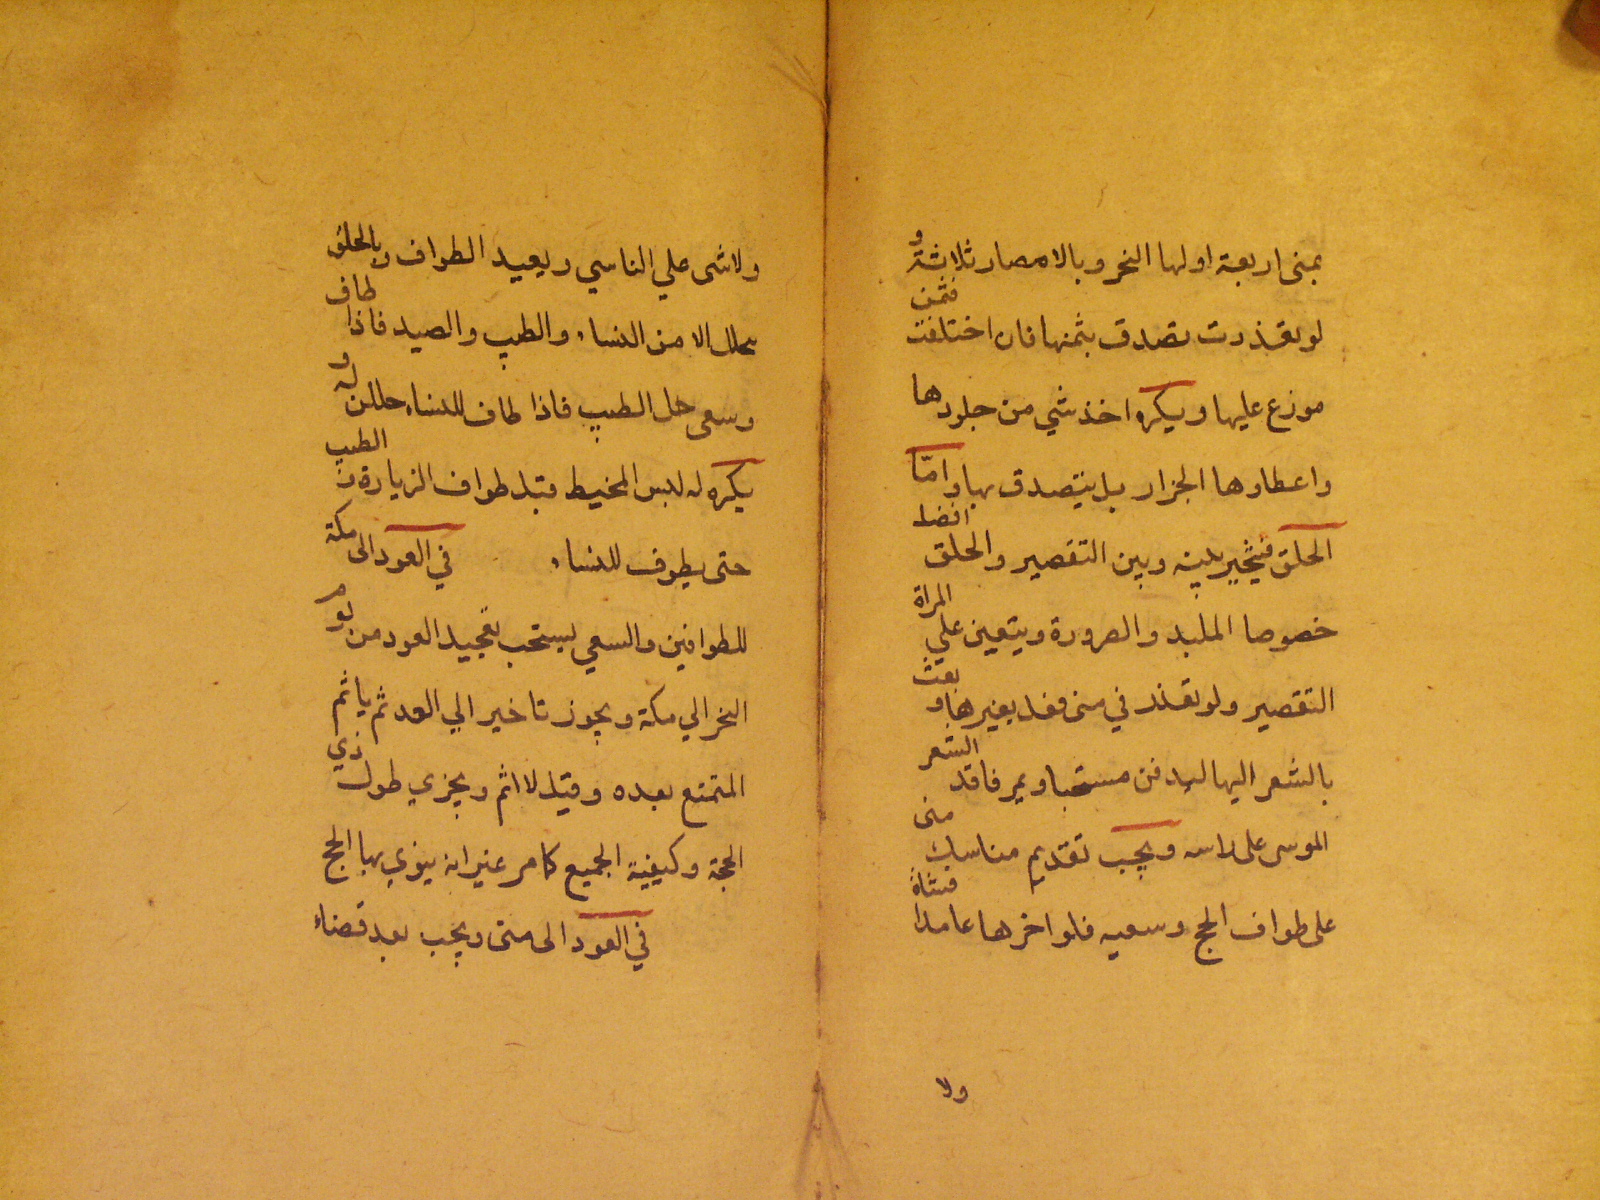 بمنى اربعة اولها النحر وبالامصار ثلاثة و
لو تعذرت تصدق بثمنها فان اختلفت فثمن
موزع عليها ويكره اخذ شي من جلودها
واعطاوها الجزار بل يتصدق بها واما
الحلق فيتخير بينه وبين التقصير والحلق افضل
خصوصا الملبد والصرورة ويتعين علي المراة
التقصير ولو تعذر في منى فعل بغيرها و بعث
بالشعر اليها ليدفن مستحبا ويمر فاقد الشعر
الموسى على راسه ويجب تقديم مناسك منى
على طواف الحج وسعيه فلو اخرها عامدا فشاة
ولا
ولا شى علي الناسي ويعيد الطواف وبالحلق
يحلل الا من النساء والطيب والصيد فاذا طاف
وسعى حل الطيب فاذا طاف للنساء حللن له و
يكره له لبس المخيط قبل طواف الزيارة و الطيب
حتى يطوف للنساء في العود الى مكة
للطوافين والسعي يستحب تعجيل العود من يوم
النحر الي مكة ويجوز تاخيره الي الغد ثم ياثم
المتمتع بعده وقيل لا اثم ويجزي طول ذي
الحجة وكيفية الجميع كما مر غير انه ينوي بها الحج
في العود الى منى ويجب بعد قضاء